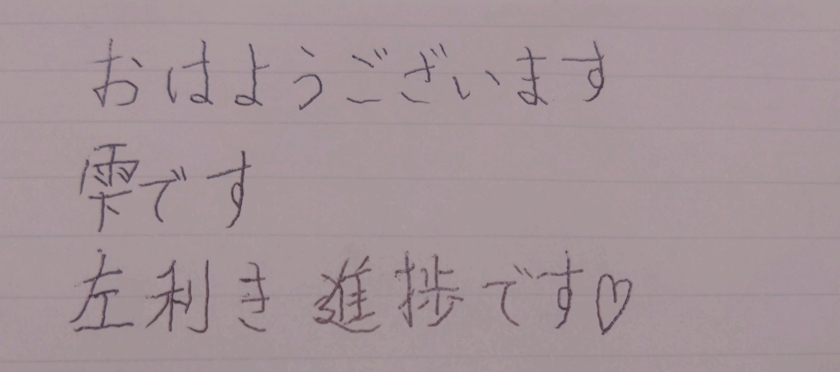 おはようございます
雫です
左利き進捗です♡